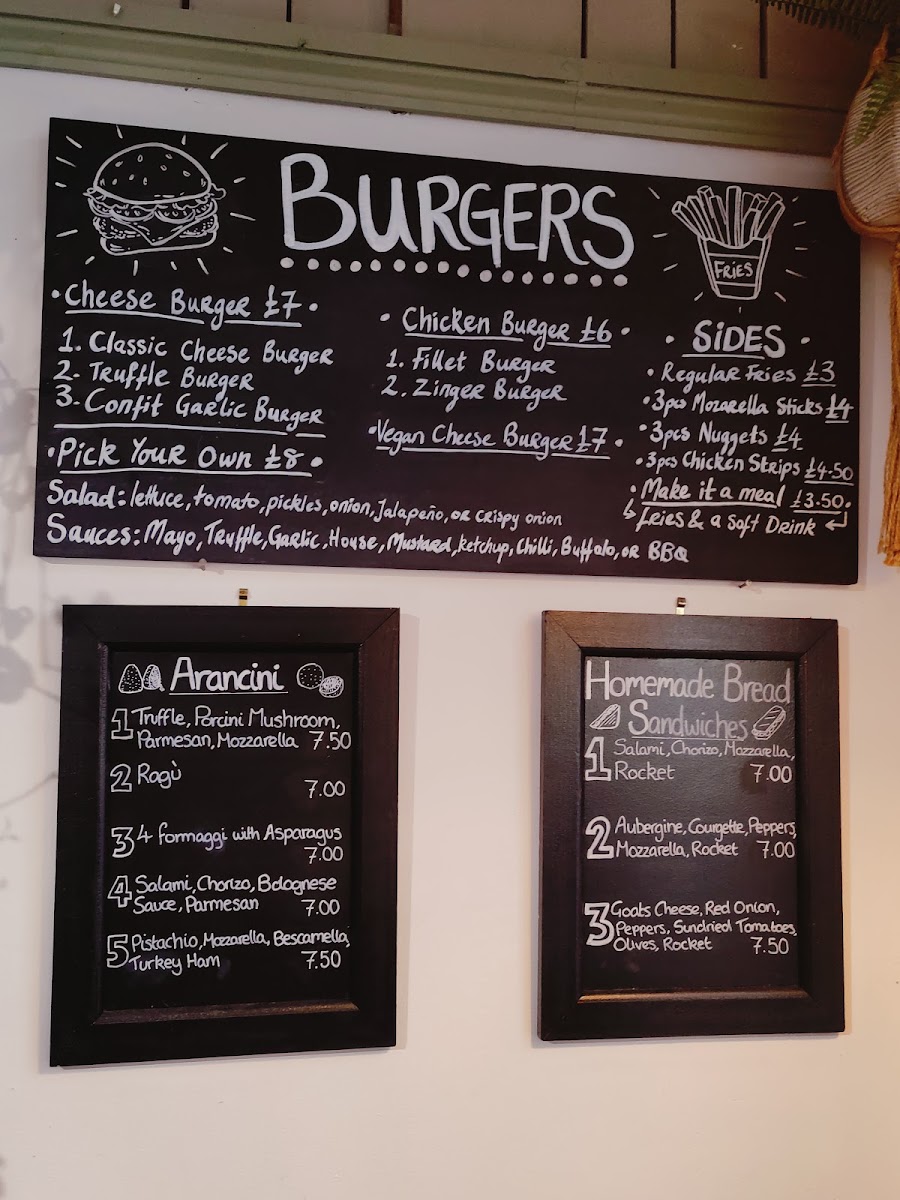 BURGERS
FRIES
• Cheese Burger £7 •
1. Classic Cheese Burger
2. Truffle Burger
3. Confit Garlic Burger
• Pick Your Own £8 •
Salad: lettuce, tomato, pickles, onion, Jalapeño, or crispy onion
Sauces: Mayo, Truffle, Garlic, House, Mustard, ketchup, Chilli, Buffalo, or BBQ
• Chicken Burger £6 •
1. Fillet Burger
2. Zinger Burger
• Vegan Cheese Burger £7 •
• SIDES •
• Regular Fries £3
• 3pcs Mozarella Sticks £4
• 3pcs Nuggets £4
• 3pcs Chicken Strips £4.50
• Make it a meal £3.50.
Fries & a Soft Drink
Arancini
1 Truffle, Porcini Mushroom,
Parmesan, Mozzarella 7.50
2 Ragù
7.00
3 4 formaggi with Asparagus
7.00
4 Salami, Chorizo, Bolognese
Sauce, Parmesan 7.00
5 Pistachio, Mozzarella, Bescamella,
Turkey Ham 7.50
Homemade Bread
Sandwiches
1 Salami, Chorizo, Mozzarella,
Rocket 7.00
2 Aubergine, Courgette, Peppers,
Mozzarella, Rocket 7.00
3 Goats Cheese, Red Onion,
Peppers, Sundried Tomatoes,
Olives, Rocket 7.50